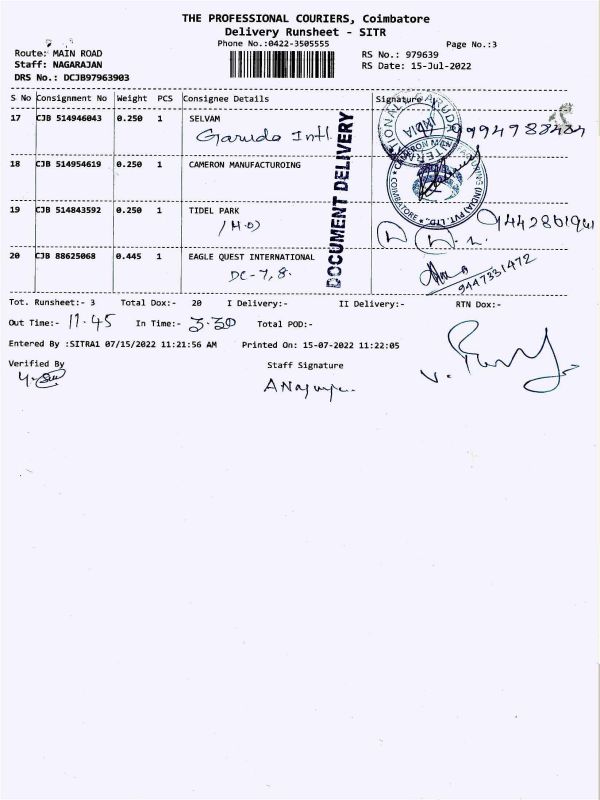 THE PROFESSIONAL COURIERS, Coimbatore
Delivery Runsheet - SITR
Phone No.:0422-3505555
Page No.:3
Route: MAIN ROAD
RS No.: 979639
Staff: NAGARAJAN
RS Date: 15-Jul-2022
DRS No.: DCJB97963903
S No Consignment No Weight PCS Consignee Details Signature
17 CJB 514946043 0.250 1 SELVAM
Garuda Intl.
18 CJB 514954619 0.250 1 CAMERON MANUFACTUROING
19 CJB 514843592 0.250 1 TIDEL PARK
(H.O)
20 CJB 88625068 0.445 1 EAGLE QUEST INTERNATIONAL
DC-7,8.
9447331472
DOCUMENT DELIVERY
Tot. Runsheet:- 3 Total Dox:- 20 I Delivery:- II Delivery:- RTN Dox:-
Out Time:- 11.45 In Time:- 3.30 Total POD:-
Entered By :SITRA1 07/15/2022 11:21:56 AM Printed On: 15-07-2022 11:22:05
Verified By Staff Signature